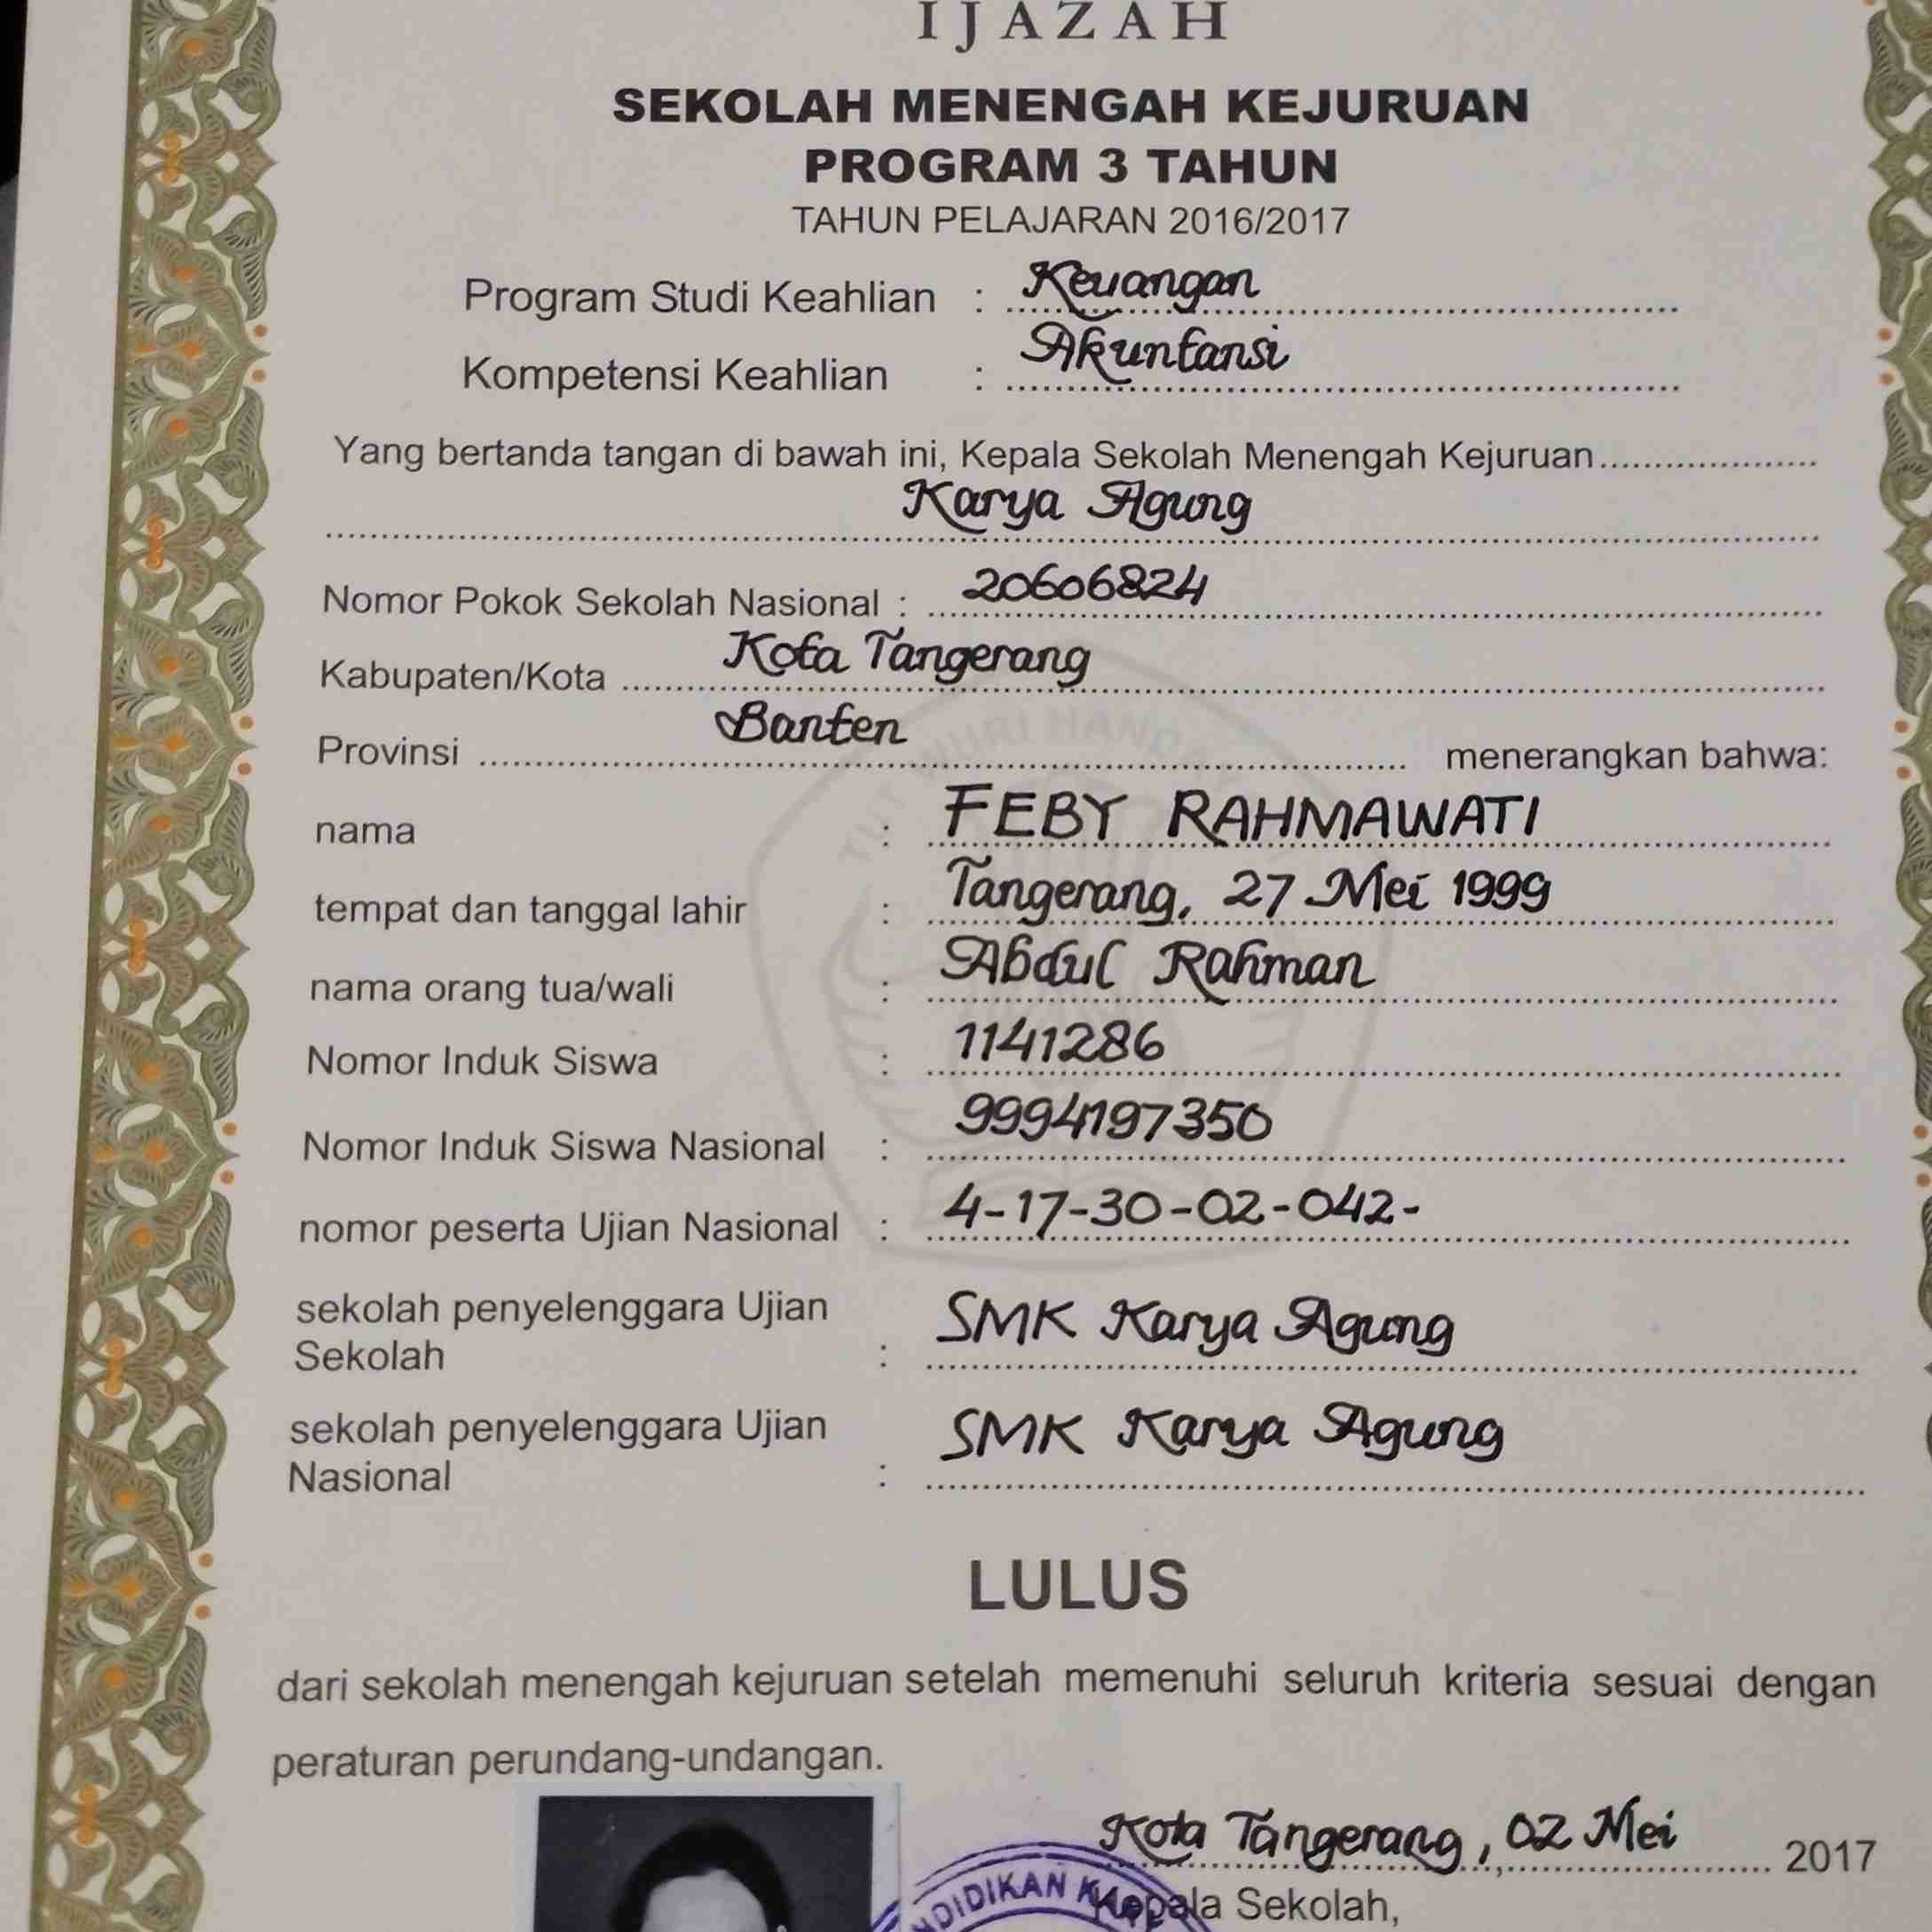 IJAZAH
SEKOLAH MENENGAH KEJURUAN
PROGRAM 3 TAHUN
TAHUN PELAJARAN 2016/2017
Program Studi Keahlian : Keuangan
Kompetensi Keahlian : Akuntansi
Yang bertanda tangan di bawah ini, Kepala Sekolah Menengah Kejuruan
Karya Agung
Nomor Pokok Sekolah Nasional : 20606824
Kabupaten/Kota Kota Tangerang
Provinsi Banten menerangkan bahwa:
nama : FEBY RAHMAWATI
tempat dan tanggal lahir : Tangerang, 27 Mei 1999
nama orang tua/wali : Abdul Rahman
Nomor Induk Siswa : 1141286
Nomor Induk Siswa Nasional : 9994197350
nomor peserta Ujian Nasional : 4-17-30-02-042-
sekolah penyelenggara Ujian
Sekolah : SMK Karya Agung
sekolah penyelenggara Ujian
Nasional : SMK Karya Agung
LULUS
dari sekolah menengah kejuruan setelah memenuhi seluruh kriteria sesuai dengan
peraturan perundang-undangan.
Kota Tangerang, 02 Mei 2017
Kepala Sekolah,